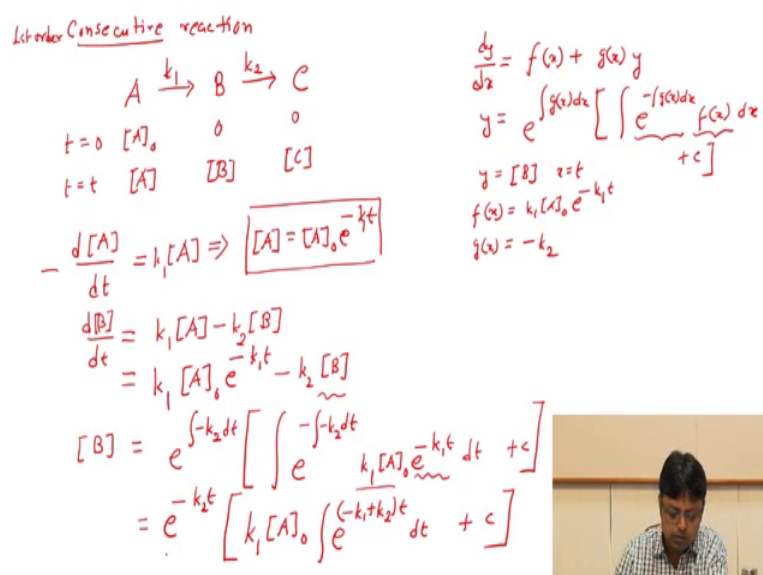 1st order Consecutive reaction
A —k₁→ B —k₂→ C
t=0 [A]₀ 0 0
t=t [A] [B] [C]
- d[A]/dt = k₁[A] ⇒ [A] = [A]₀e^(-k₁t)
d[B]/dt = k₁[A] - k₂[B]
= k₁[A]₀e^(-k₁t) - k₂[B]
[B] = e^(∫-k₂dt) [ ∫ e^(-∫-k₂dt) k₁[A]₀e^(-k₁t) dt + c ]
= e^(-k₂t) [ k₁[A]₀ ∫ e^((-k₁+k₂)t) dt + c ]
dy/dx = f(x) + g(x) y
y = e^(∫g(x)dx) [ ∫ e^(-∫g(x)dx) f(x) dx
+c ]
y = [B] x=t
f(x) = k₁[A]₀e^(-k₁t)
g(x) = -k₂